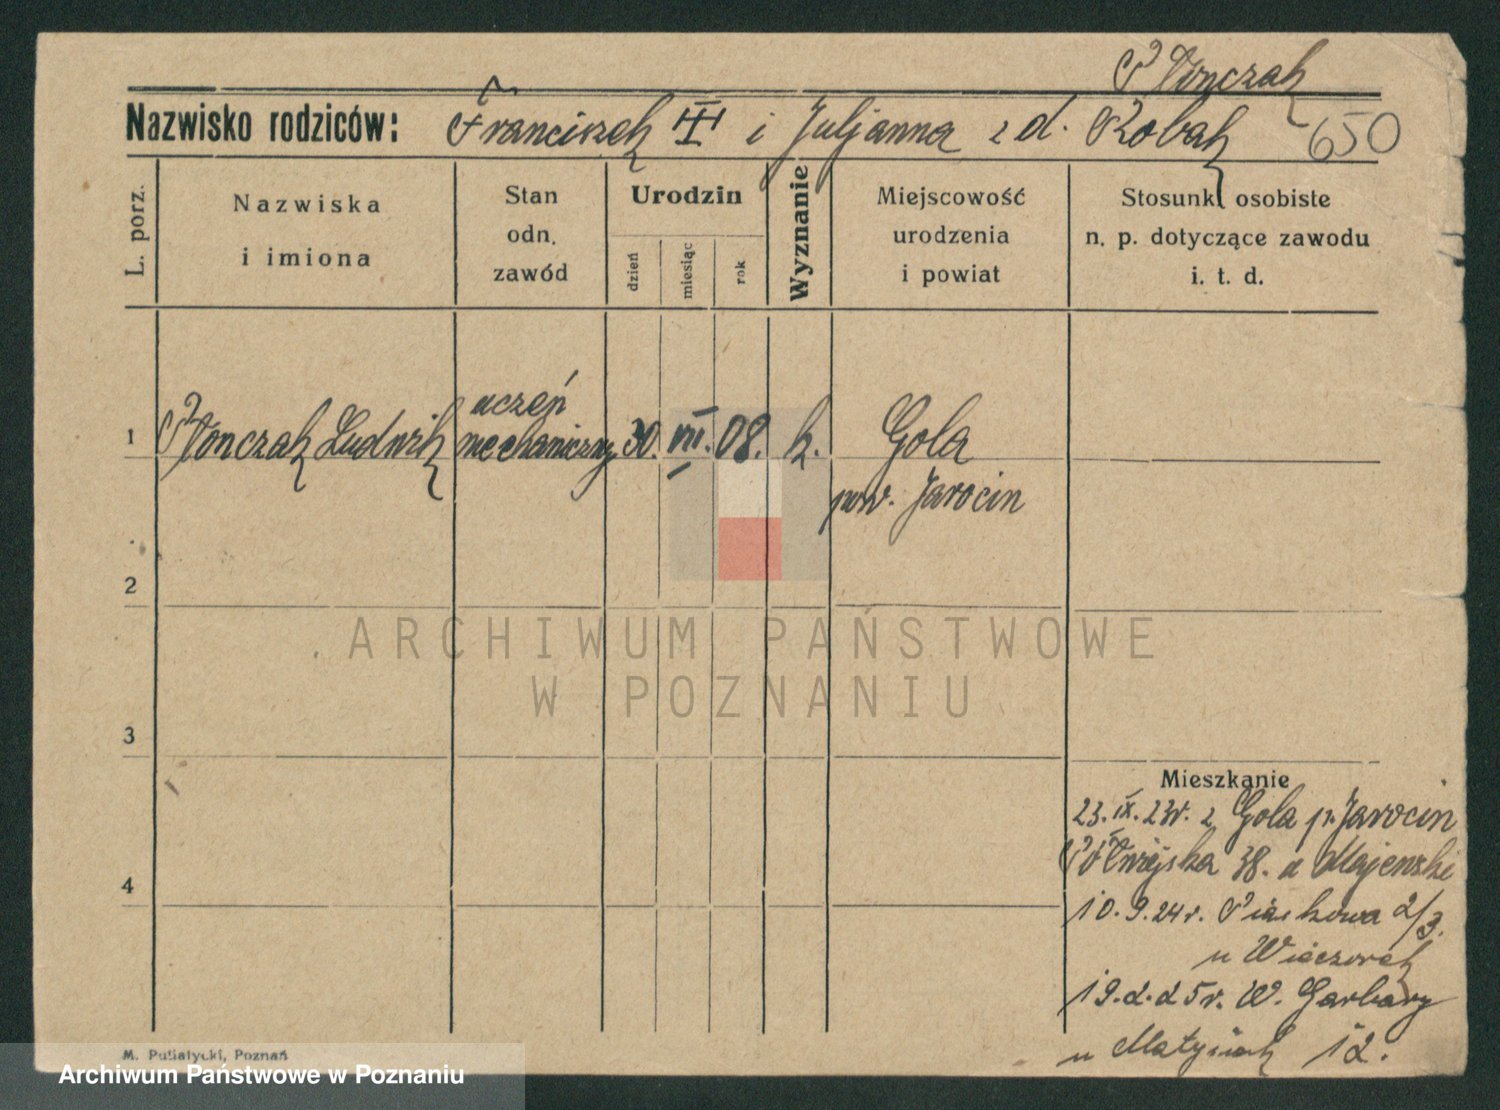 Nazwisko rodziców: Franciszek III i Juljanna z d. Robak 650
L. porz.
Nazwiska
i imiona
Stan
odn.
zawód
Urodzin
dzień
miesiąc
rok
Wyznanie
Miejscowość
urodzenia
i powiat
Stosunki osobiste
n. p. dotyczące zawodu
i. t. d.
1
Ludwik
uczeń
mechaniczny
30. VII. 08. k.
Gola
pow. Jarocin
2
ARCHIWUM PAŃSTWOWE
W POZNANIU
3
Mieszkanie
23. IX. 23r. z Gola p. Jarocin
38. u Majewski
10. 9. 24r. Piaskowa 2/3.
u Wieczorek
19. 2. 25r. W. Garbary
u 12.
4
M. Putiatycki, Poznań
Archiwum Państwowe w Poznaniu